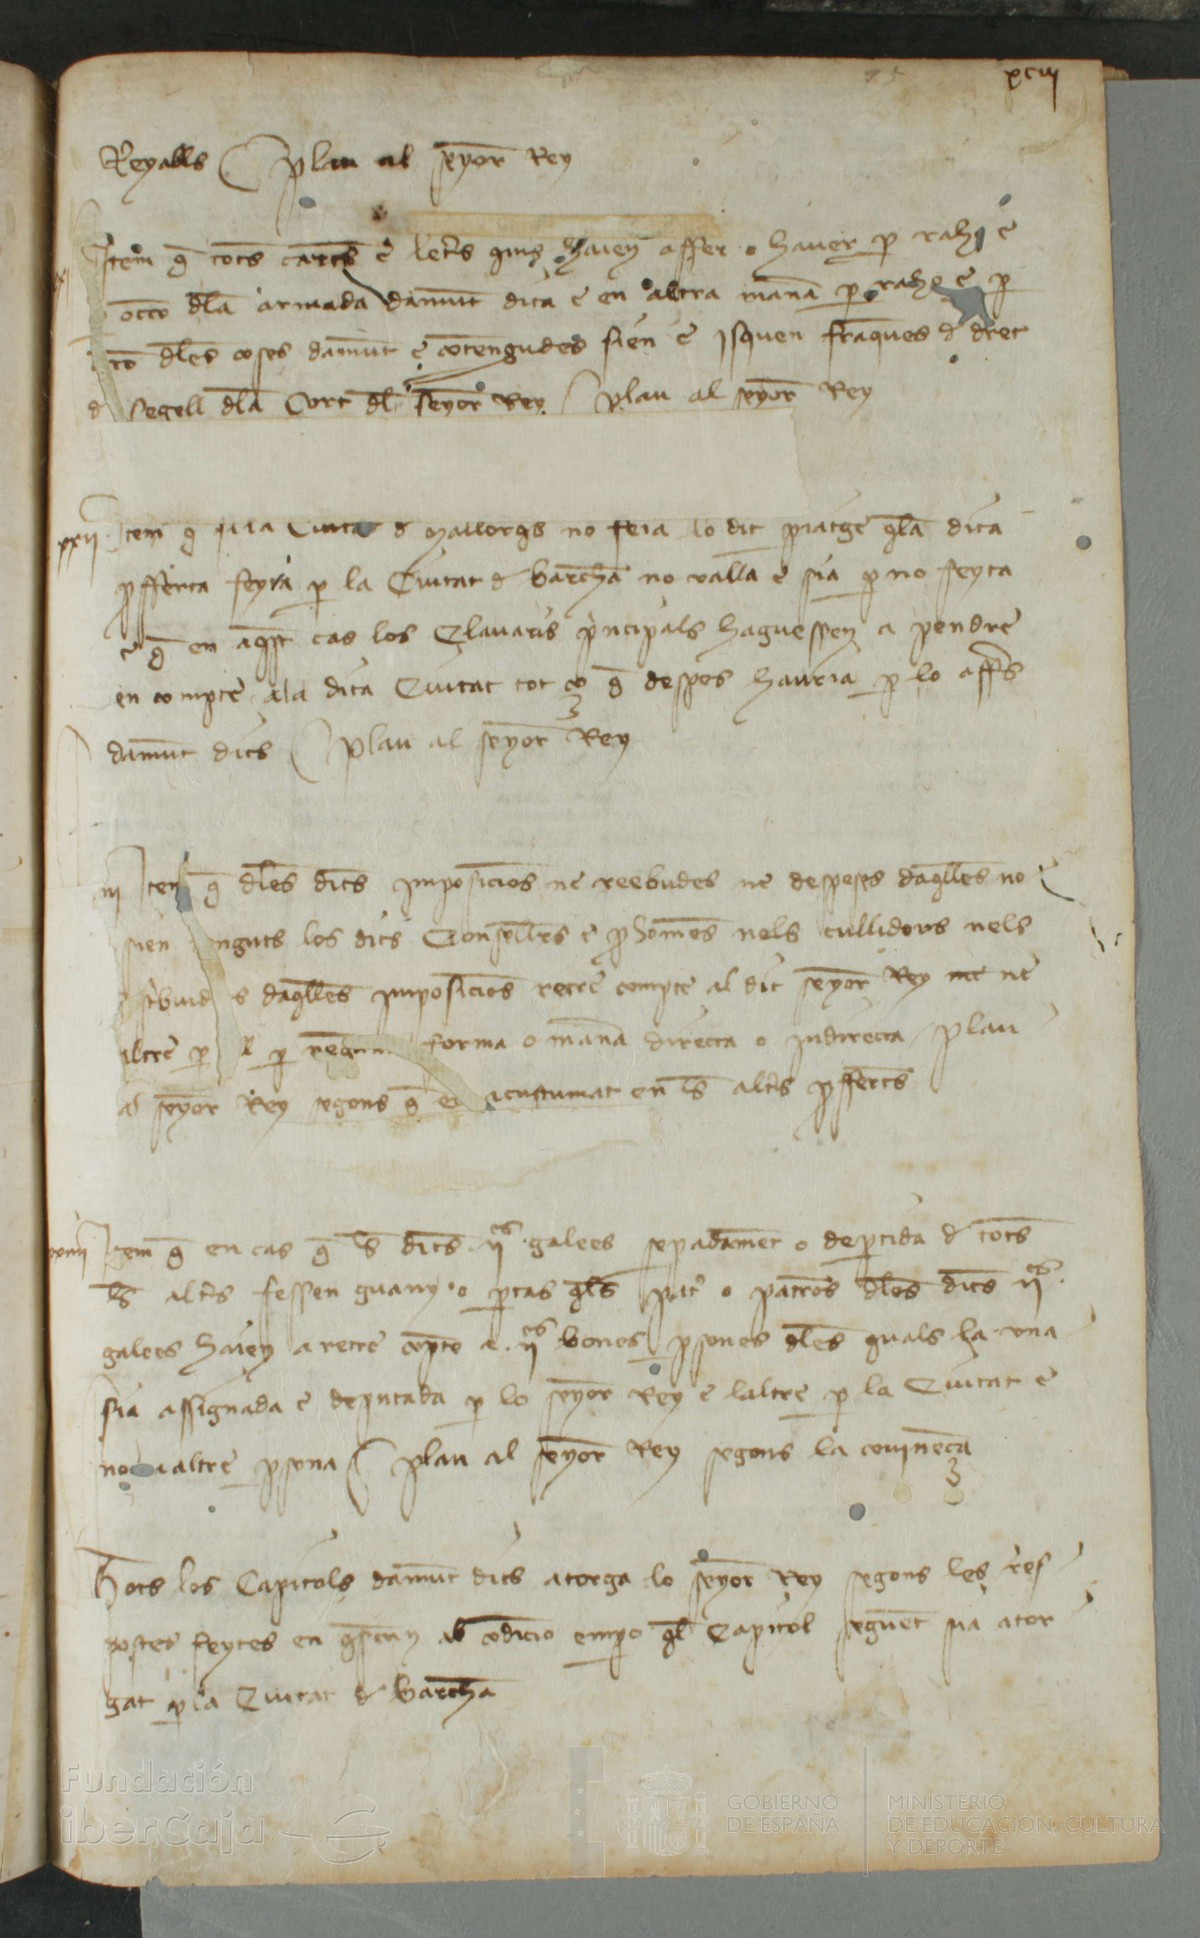 95 xciij
Reyalls / plau al senyor Rey
Item q̄ tots cartes e letr̄s quis hajen affer o haver p̄ raho e
occo dl̄a armada damūt dita e en altra manā p̄ raho e p̄
dl̄es coses damūt cōtengudes sien e isquen franques d dret
d segell dl̄a Cort dl̄ senȳor Rey / plau al senȳor Rey
xxij Item q̄ si la Ciutat d Mallorq̄s no feia lo dit q̄la dita
p̄fferta feyta p̄ la Ciutat d barch̄a no valla e sia p̄ no feyta
e q̄ en aq̄st cas los Clavaris p̄ncipals haguessen a pendre
en compte ala dita Ciutat tot ço q̄ despes hauria p̄ lo aff̄s
damūt dits / plau al senȳor Rey
Item q̄ dl̄es dit̄s imposicios ne reebudes ne despeses daq̄lles no
sien tenguts los dits Consellr̄s e p̄homēs nels cullidors nels
daq̄lles imposicios retre compte al dit senȳor Rey ne
altre p̄ forma o manā directa o indirecta / plau
al senȳor Rey segons q̄ es acustumat en ls̄ altr̄s p̄ffertes
xxiiij Item q̄ en cas q̄ ls̄ dit̄s ij es galees sepadamēt o depertida d tot̄s
ls̄ altr̄s fessen guany o p̄tas q̄ls patr̄ o patrōs dl̄es dit̄s ij es
galees hajen a retre cōpte a ij es bones p̄sones dl̄es quals la una
sia assignada e deputada p̄ lo senȳor Rey e laltre p̄ la Ciutat e
no a altre p̄sona / plau al senȳor Rey segons la covinēça
Tots los Capitols damūt dits atorga lo senȳor Rey segons les res
postes feytes en q̄scun ab cōdicio emp̄o q̄l Capitol seguēt sia ator
gat p̄ la Ciutat d barch̄a
Fundación
iberCaja
GOBIERNO
DE ESPAÑA
MINISTERIO
DE EDUCACIÓN, CULTURA
Y DEPORTE